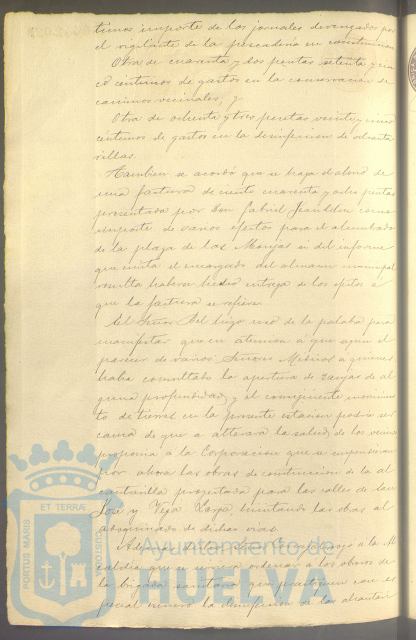 timos importe de los jornales devengados por
el vigilante de la pescaderia en construccion
Otra de cuarenta y dos pesetas setenta y cin
co centimos de gastos en la conservacion de
caminos vecinales, y
Otra de ochenta y tres pesetas veinte y cinco
centimos de gastos en la desinfeccion de
Tambien se acordó que se haga el abono de
una factura de ciento cuarenta y ocho pesetas
presentada por Don Gabriel como
importe de varios efectos para el alumbrado
de la plaza de las Monjas si del informe
que emita el encargado del almacen municipal
resulta haberse hecho entrega de los efectos á
que la factura se refiere.
El Señor Del hizo uso de la palabra para
manifestar que en atencion á que segun el
parecer de varios Señores Médicos á quienes
habia consultado la apertura de zanjas de al
guna profundidad y el consiguiente movimien
to de tierras en la presente estacion podria ser
causa de que se alterara la salud de los vecinos
proponia á la Corporacion que se suspendieran
por ahora las obras de construccion de la al
cantarilla proyectada para las calles de San
José y Vega Larga, limitando las obras al
adoquinado de dichas vias.
á la Al
caldia que se sirviera ordenar á los obreros de
la brigada sanitaria que practiquen con es
pecial esmero la desinfeccion de las alcantari
PORTUS MARIS ET TERRÆ CUSTODIA
Ayuntamiento de
HUELVA